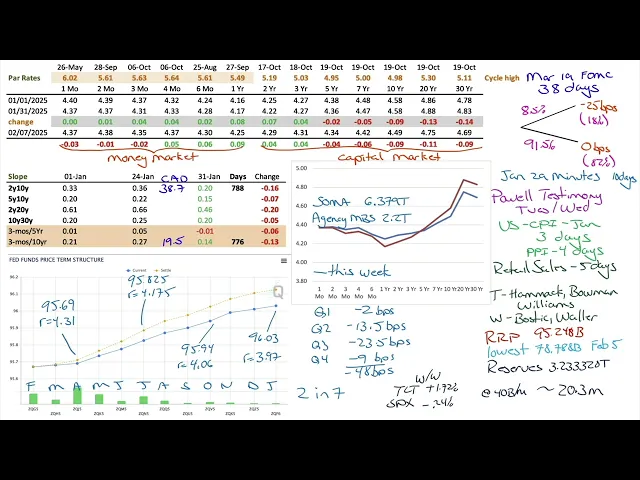 26-May 28-Sep 06-Oct 06-Oct 25-Aug 27-Sep 17-Oct 18-Oct 19-Oct 19-Oct 19-Oct 19-Oct 19-Oct
Par Rates 6.02 5.61 5.63 5.64 5.61 5.49 5.19 5.03 4.95 5.00 4.98 5.30 5.11 Cycle high
1 Mo 2 Mo 3 Mo 4 Mo 6 Mo 1 Yr 2 Yr 3 Yr 5 Yr 7 Yr 10 Yr 20 Yr 30 Yr
01/01/2025 4.40 4.39 4.37 4.32 4.24 4.16 4.25 4.27 4.38 4.48 4.58 4.86 4.78
01/31/2025 4.37 4.37 4.31 4.33 4.28 4.17 4.22 4.27 4.36 4.47 4.58 4.88 4.83
change 0.00 0.01 0.04 0.02 0.02 0.08 0.07 0.04 -0.02 -0.05 -0.09 -0.13 -0.14
02/07/2025 4.37 4.38 4.35 4.37 4.30 4.25 4.29 4.31 4.34 4.42 4.49 4.75 4.69
-0.03 -0.01 -0.02 0.05 0.06 0.09 0.04 0.04 -0.04 -0.06 -0.09 -0.11 -0.09
money market
capital market
Slope 01-Jan 24-Jan CAD 31-Jan Days Change
2y10y 0.33 0.36 38.7 0.20 788 -0.16
5y10y 0.20 0.22 0.15 -0.07
2y20y 0.61 0.66 0.46 -0.20
10y30y 0.20 0.25 0.20 -0.05
3-mos/5Yr 0.01 0.05 -0.01 -0.06
3-mos/10yr 0.21 0.27 19.5 0.14 776 -0.13
FED FUNDS PRICE TERM STRUCTURE
Current Settle
96.2
96
91.8
91.6
95.69
r=4.31
95.825
r=4.175
95.94
r=4.06
96.03
r=3.97
Q
F M A M J J A S O N D J
5.00
4.80
4.60
4.40
4.20
4.00
SOMA 6.379T
Agency MBS 2.2T
—this week
1 2 3 4 6 1 Yr 2 Yr 3 Yr 5 Yr 7 Yr 10 Yr 20 Yr 30 Yr
Mo Mo Mo Mo Mo
Q1 -2 bps
Q2 -13.5bps
Q3 -23.5bps
Q4 -9 bps
-48bps
2 in 7
W/W
TLT +1.72%
SPX -.24%
Mar 19 FOMC
38 days
85%
-25bps
(18%)
91.5%
0bps
(82%)
Jan 29 minutes 10days
Powell Testimony
Tues/Wed
US-CPI-Jan
3 days
PPI-4 days
Retail Sales -5days
T-Hammack, Bowman
Williams
W-Bostic, Waller
RRP 95.248B
lowest 78.788B Feb 5
Reserves 3.233320T
@40B/m ~20.3m